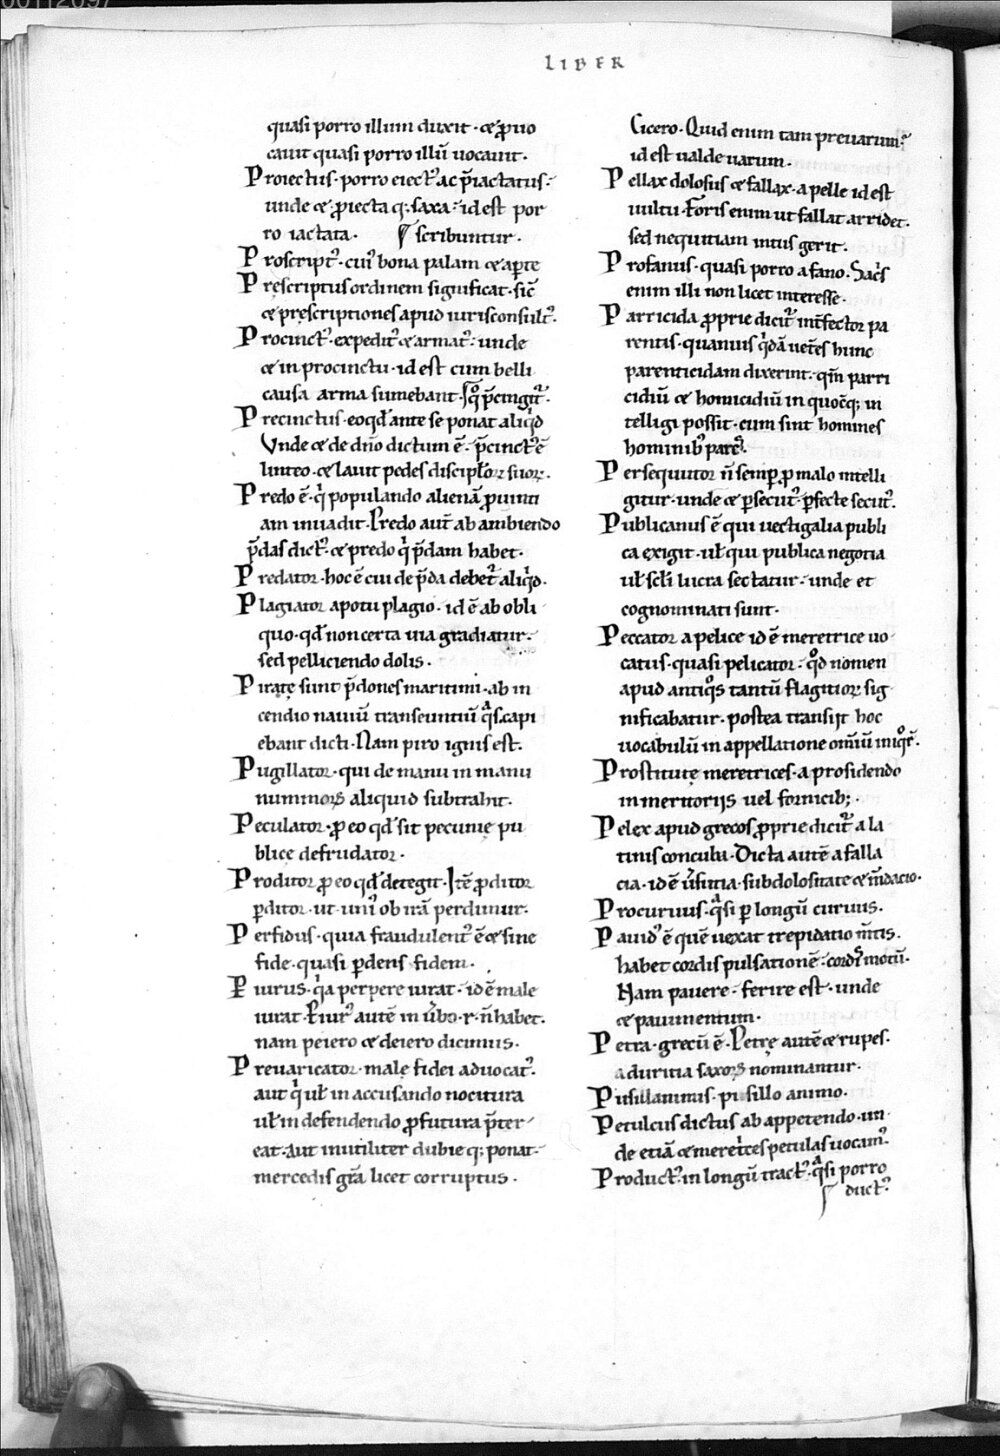 LIBER
quasi porro illum duxit · & ꝓuo
cauit quasi porro illū uocauit.
Proiectus · porro eiectꝰ ac p̄iactatus ·
unde & ꝓiecta q; saxa · id est por
ro iactata. scribuntur.
Proscriptꝰ · cuiꝰ bona palam & aꝑte
Pręscriptus ordinem significat · sic̄
& pręscriptiones apud iurisconsultꝰ.
Procinctꝰ · expeditꝰ & armatꝰ · unde
& in procinctu · id est cum belli
causa arma sumebant.
Precinctus · eo qd̄ ante se ponat aliqͥd
Unde & de dn̄o dictum ē · p̄cinctꝰ ē
linteo · & lauit pedes discipłoꝝ suoꝝ.
Predo ē · qͥ populando alienā ꝓuinti
am inuadit. Predo aut̄ ab ambiendo
p̄das dictꝰ · & predo qͥ p̄dam habet.
Predator · hoc ē cui de p̄da debet᷑ aliqͥd.
Plagiator apotu plagio · id ē ab obli
quo · qd̄ non certa uia gradiatur ·
sed pelliciendo dolis.
Piratę sunt p̄dones maritimi · ab in
cendio nauiū transeuntiū qͣs capi
ebant dicti · Nam piro ignis est.
Pugillator · qui de manu in manu
nummorꝫ aliquid subtrahit.
Peculator · ꝓ eo qd̄ sit pecunię pu
blicę defrudator.
Proditor ꝓ eo qd̄ detegit · Itē ꝓditor
ꝑditor · ut uniꝰ ob irā perdunur.
Perfidus · quia fraudulentꝰ ē & sine
fide · quasi ꝑdens fidem.
Piurus · qͣ perpere iurat · id ē male
iurat. Piurꝰ autē in ūbo · r · n̄ habet.
nam peiero & deiero dicimus.
Preuaricator · malę fidei aduocatꝰ.
aut qͥ uł in accusando nocitura
uł in defendendo ꝓfutura p̄ter
eat · aut inutiliter dubie q; ponat ·
mercedis gr̄a licet corruptus.
Cicero · Quid enim tam preuarum ·
id est ualde uarum.
Pellax dolosus & fallax · a pelle id est
uultu · Foris enim ut fallat arridet.
sed nequitiam intus gerit.
Profanus · quasi porro a fano · Sac̄s
enim illi non licet interesse.
Parricida ꝓprie dicit᷑ int̄fector pa
rentis · quanuis qͥdā uet̄es hunc
parenticidam dixerint · qm̄ parri
cidiū & homicidiū in quocūq; in
telligi possit · cum sint homines
hominibꝰ pares.
Persequutor n̄ semꝑ ꝓ malo intelli
gitur · unde & ꝑsecutꝰ · ꝑfecte secutꝰ.
Publicanus ē qui uectigalia publi
ca exigit · uł qui publica negotia
uł scł̄i lucra sectatur · unde et
cognominati sunt.
Peccator a pelice id ē meretrice uo
catus · quasi pelicator · qͦd nomen
apud antiqͦs tantū flagitioꝝ sig
nificabatur · postea transijt hoc
uocabulū in appellatione omniū iniqͦꝝ.
Prostitutę meretrices · a prosidendo
in meritorijs uel fornicib; ·
Pelex apud grecos ꝓprie dicit᷑ a la
tinis concuba · Dicta autē a falla
cia · id ē ūsutia · subdolositate & m̄dacio.
Procuruus · qͣsi ꝑ longū curuus.
Pauidꝰ ē quē uexat trepidatio m̄tis.
habet cordis pulsationē · cordis motū.
Nam pauere · ferire est · unde
& pauimentum.
Petra · grecū ē · Petrę autē & rupes ·
a duritia saxorꝫ nominantur.
Pusillanimis · pusillo animo.
Petulcus dictus ab appetendo · un
de etiā & meretͥces petulas uocamꝰ.
Productꝰ · in longū tractꝰ · qͣsi porro
ductꝰ.